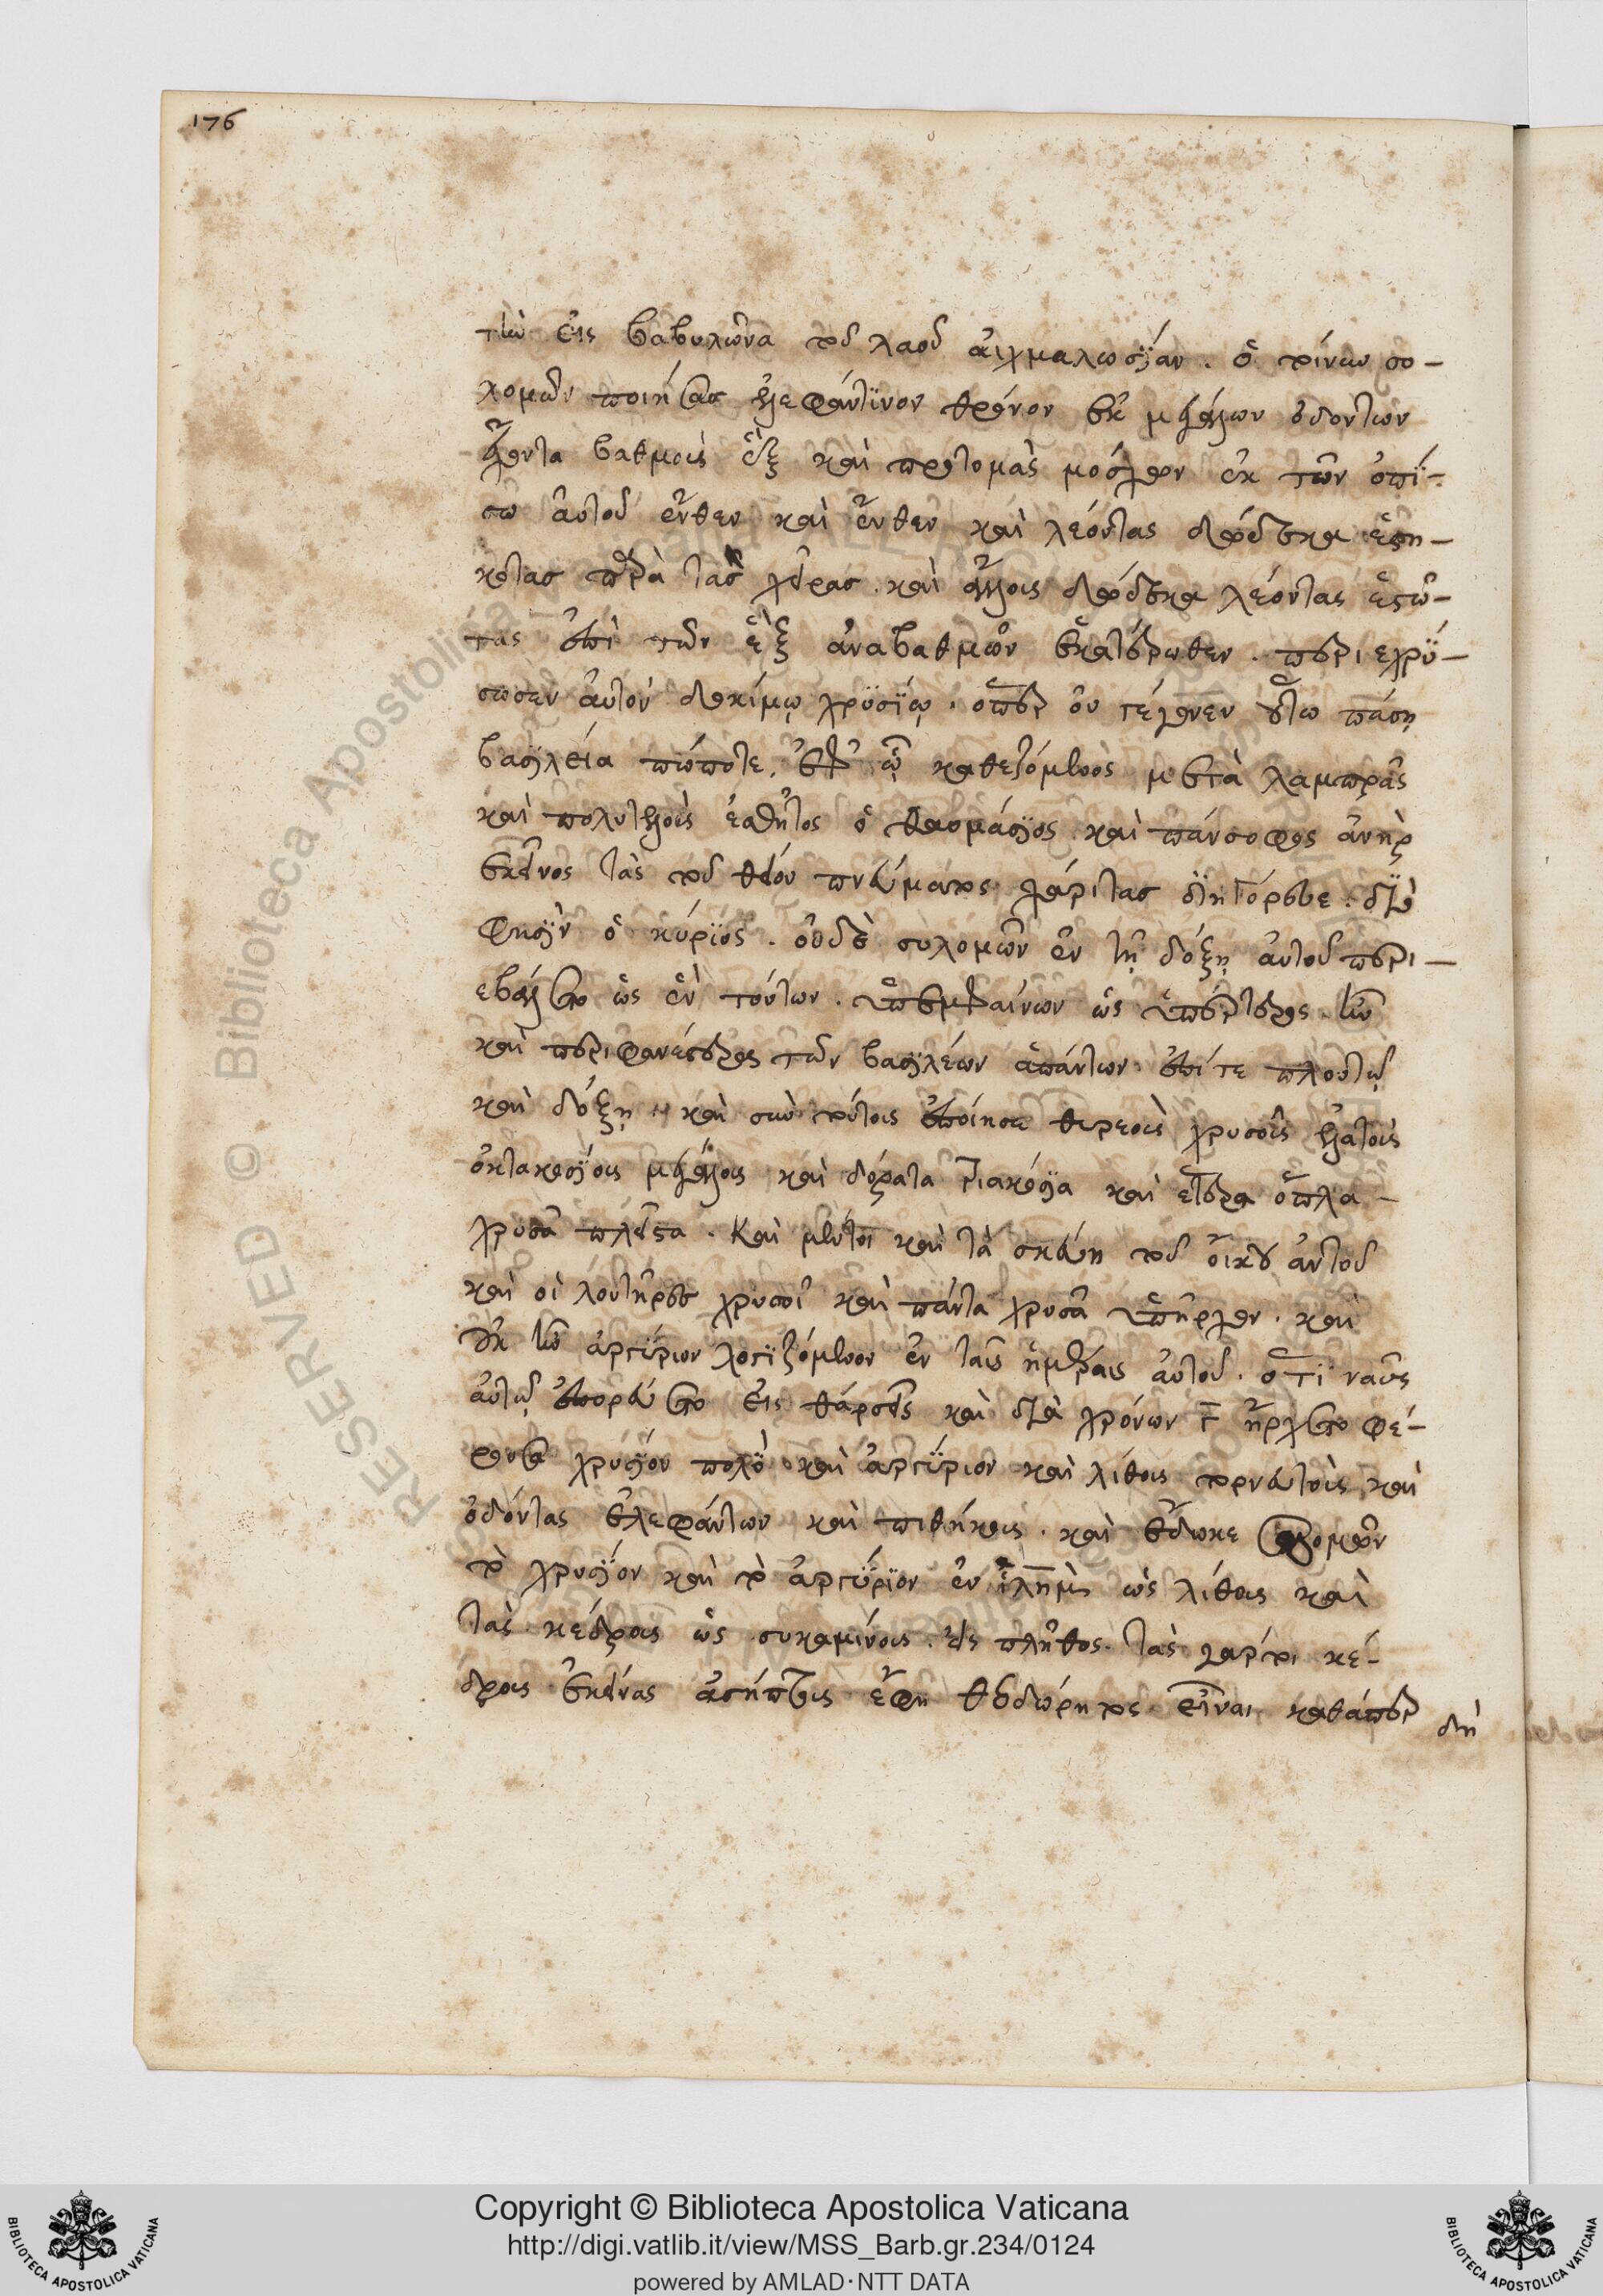 176
τὴν εἰς βαβυλῶνα τοῦ λαοῦ αἰχμαλωσΐαν. ὁ τοίνυν σο-
λομῶν ποιήσας ἐλεφάντϊνον θρόνον ἐκ μεγάλων ὀδοντων
ἔχοντα βαθμοὺς ἓξ καὶ προτομὰς μόσχων ἐκ τῶν ὀπί-
σω αὐτοῦ ἔνθεν καὶ ἔνθεν καὶ λεόντας δώδεκα ἑστη-
κότας παρὰ τὰς χεῖρας. καὶ ἄλλους δώδεκα λέοντας ἑστῶ-
τας ἐπὶ τῶν ἓξ ἀναβαθμῶν ἑκατέρωθεν. περιεχρύ-
σωσεν αὐτὸν δοκίμῳ χρυσΐῳ. ὅπερ οὐ γέγονεν οὕτω πάσῃ
βασιλεία πώποτε. ἐφ' ᾧ καθεζόμενος μετὰ λαμπρᾶς
καὶ πολυτελοὺς ἐσθῆτος ὁ θαυμάσιος καὶ πάνσοφος ἀνὴρ
ἐκεῖνος τὰς τοῦ θείου πνεύματος χάριτας διηγόρευε. διὸ
φησὶν ὁ κύριος. οὐδὲ σολομῶν ἐν τῇ δόξῃ αὐτοῦ περι-
εβάλετο ὡς ἓν τούτων. ὑπεμφαίνων ὡς ὑπέρτερος ἦν
καὶ περιφανέστερος τῶν βασιλέων ἁπάντων ἐπί τε πλούτῳ
καὶ δόξῃ. καὶ σὺν τούτοις ἐποίησε θυρεοὺς χρυσοῦς ἐλατοὺς
ὀκτακοσίους μεγάλους καὶ δόρατα τριακόσια καὶ ἕτερα ὅπλα
χρυσᾶ πλεῖστα. καὶ μέντοι καὶ τὰ σκεύη τοῦ οἴκου αὐτοῦ
καὶ οἱ λουτῆρες χρυσοῖ καὶ πάντα χρυσᾶ ὑπῆρχον. καὶ
οὐκ ἦν ἀργύριον λογϊζόμενον ἐν ταῖς ἡμέραις αὐτοῦ. ὅτι ναῦς
αὐτῷ ἐπορεύετο εἰς θάρσεῖς καὶ διὰ χρόνων γ ἤρχετο φέ-
ρουσα χρυσίον πολὺ καὶ ἀργύριον καὶ λίθους τορνευτοὺς καὶ
ὀδόντας ἐλεφάντων καὶ πιθήκους. καὶ ἔδωκε σολομῶν
τὸ χρυσίον καὶ τὸ ἀργύριον ἐν ἱλημ ὡς λίθους καὶ
τὰς κέδρους ὡς συκαμίνους εἰς πλῆθος. τὰς χάριτι κέ-
δρους ἐκείνας ἀσήπτους ἔφη θεοδώρητος εἶναι καθάπερ
δὴ
Copyright © Biblioteca Apostolica Vaticana
http://digi.vatlib.it/view/MSS_Barb.gr.234/0124
powered by AMLAD·NTT DATA